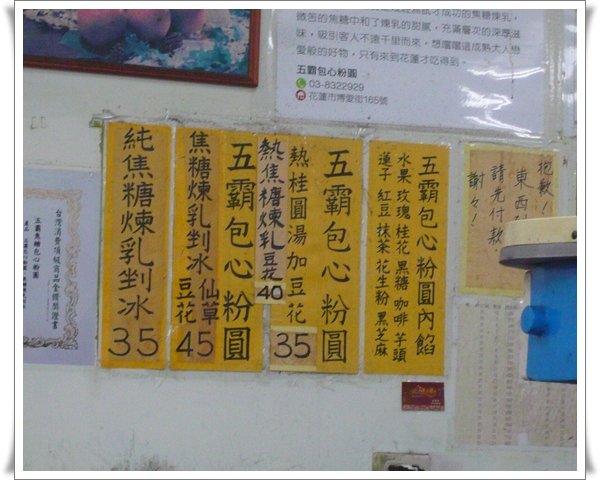 微苦的焦糖中和了煉乳的甜膩，充滿層次的深厚滋
味，吸引客人不遠千里而來，想嚐嚐這成熟大人戀
愛般的好物，只有來到花蓮才吃得到。
五霸包心粉圓
03-8322929
花蓮市博愛街165號
抱歉！
東西
請先付款
謝々！
五霸包心粉圓內餡
水果 玫瑰 桂花 黑糖 咖啡 芋頭
蓮子 紅豆 抹茶 花生粉 黑芝麻
五霸包心粉圓
熱桂圓湯加豆花
35
熱焦糖煉乳豆花
40
五霸包心粉圓
焦糖煉乳剉冰 仙草
豆花
45
純焦糖煉乳剉冰
35
台灣消費頂級商品金鑽獎證書
五霸焦糖包心粉圓